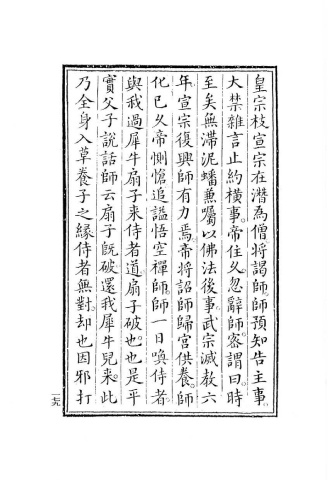 皇宗枝宣宗在潛爲僧將謁師師預知告主事
大禁雜言止約橫事帝住久忽辭師密謂曰時
至矣無滯泥蟠兼囑以佛法後事武宗滅教六
年宣宗復興師有力焉帝將詔師歸宮供養師
化已久帝惻愴追謚悟空禪師師一日喚侍者
與我過犀牛扇子來侍者道扇子破也也是平
實父子說話師云扇子旣破還我犀牛兒來此
乃全身入草養子之緣侍者無對却也因邪打
一二九